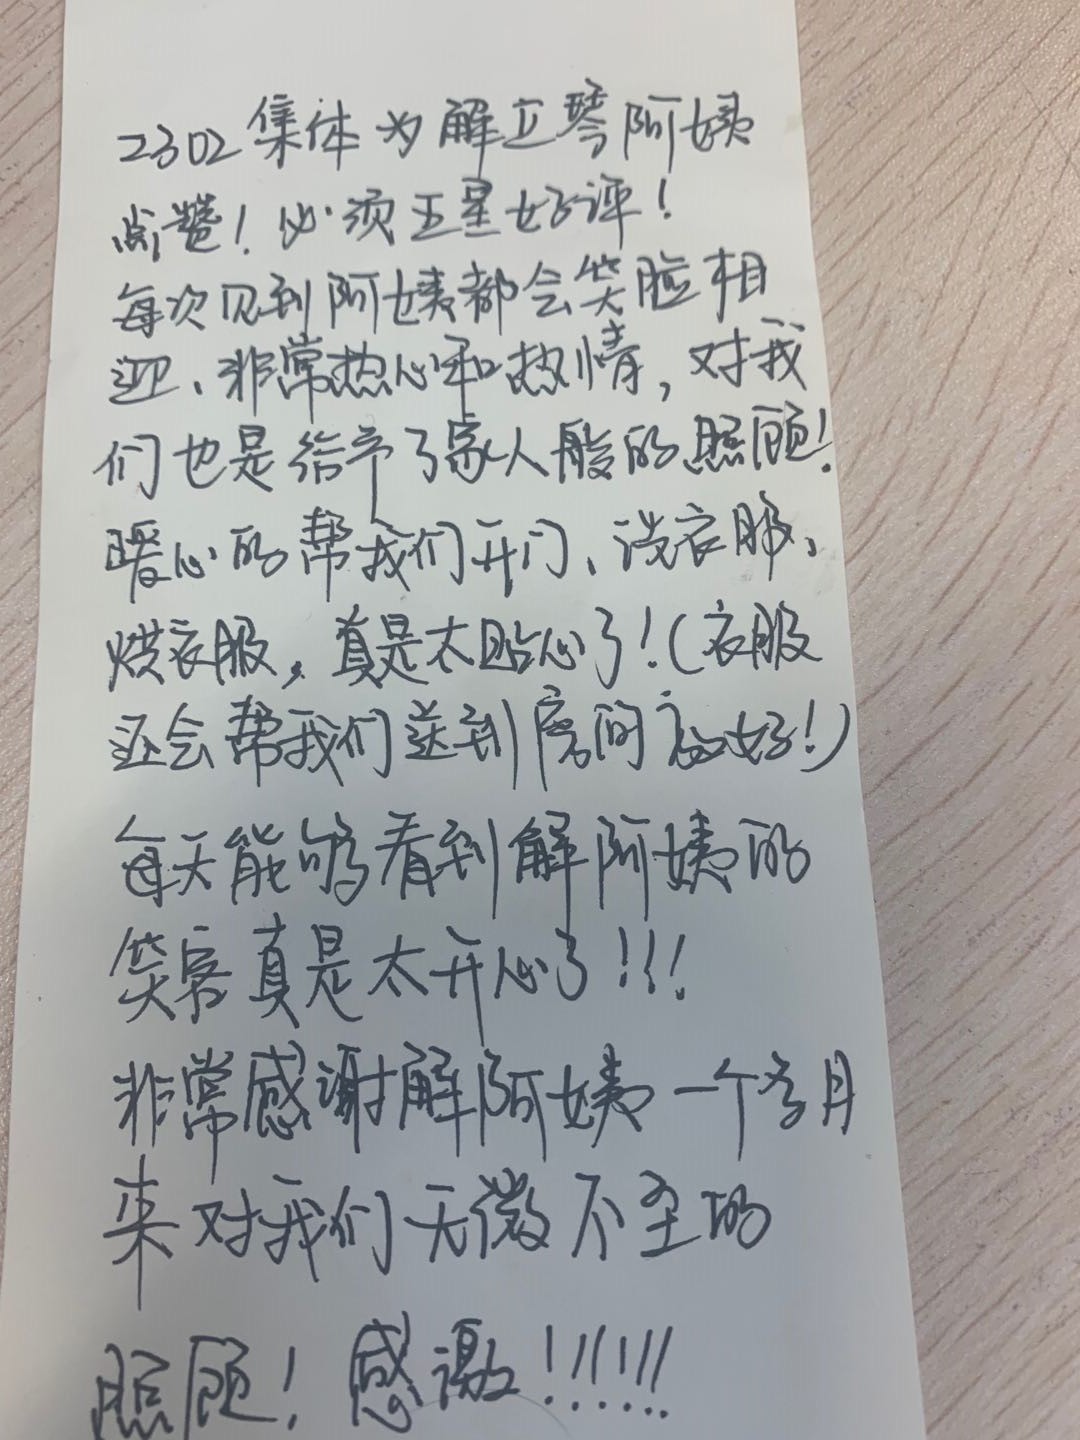 2302集体为解立琴阿姨
点赞！必须五星好评！
每次见到阿姨都会笑脸相
迎、非常热心和热情，对我
们也是给予了家人般的照顾！
暖心的帮我们开门、洗衣服、
烘衣服，真是太贴心了！（衣服
还会帮我们送到房间放好！）
每天能够看到解阿姨的
笑容真是太开心了！！！
非常感谢解阿姨一个多月
来对我们无微不至的
照顾！感谢！！！！！！